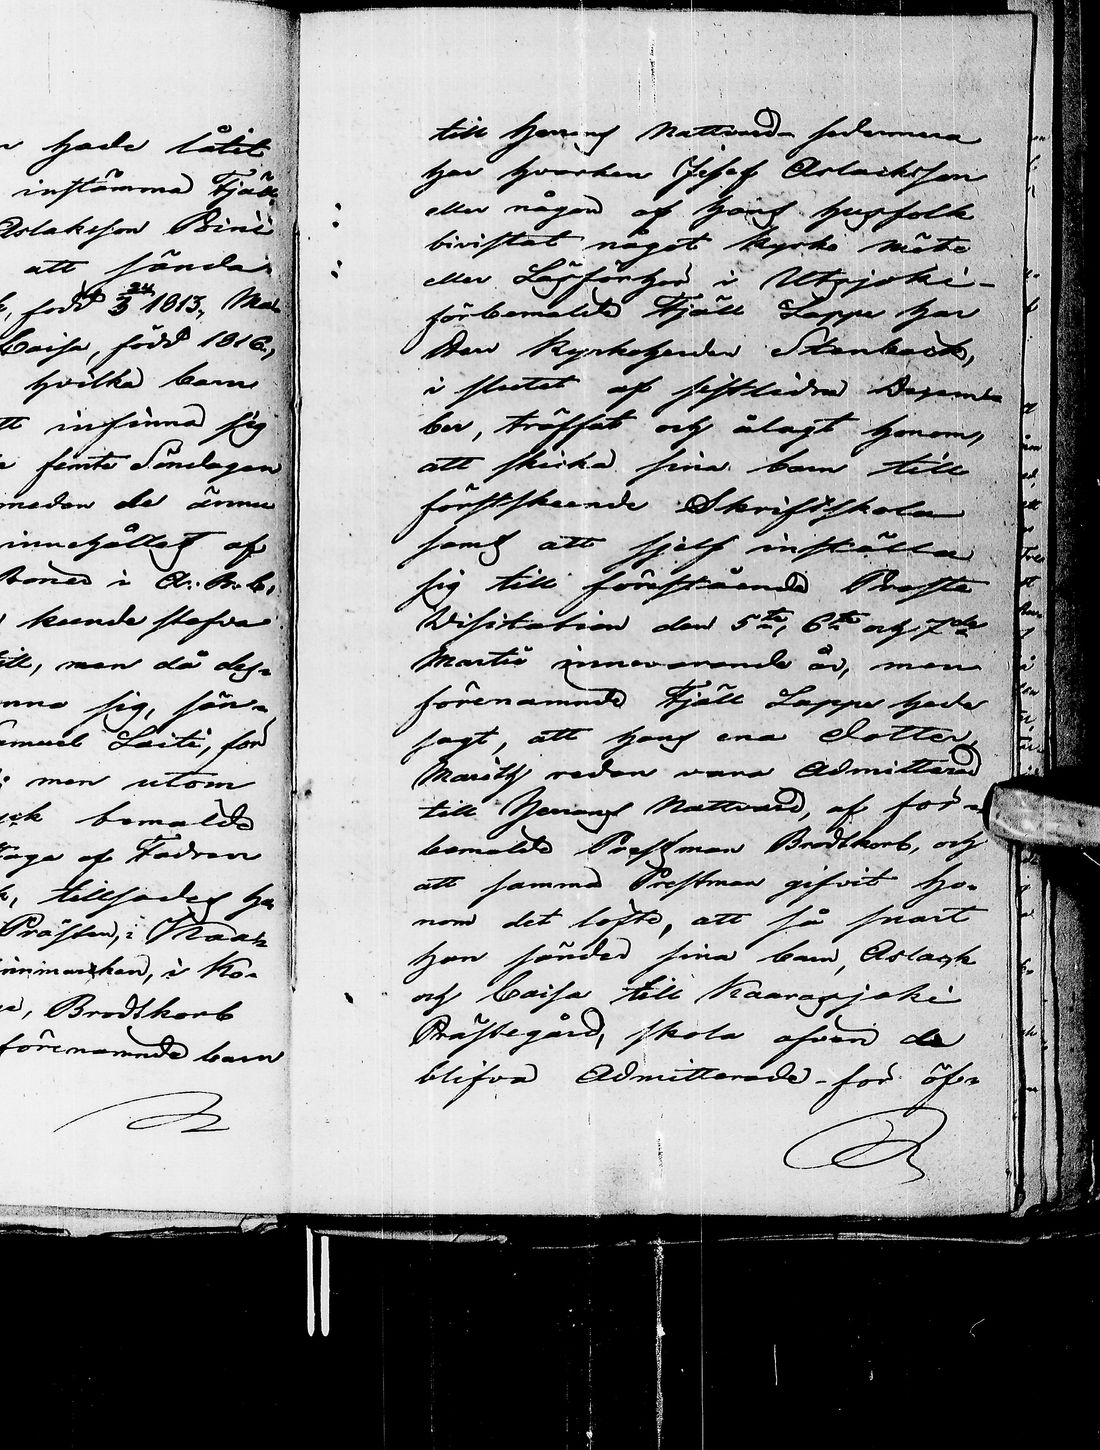 hade låtit
instämma Fjäll
Aslaksson
att sända
född 24/3 1813, Ma-
Caisa, född 1816,
hvilka barn
infinna sig
femte Söndagen
meden de ännu
innehållet af
i A. B. C.
kunde stafva
till, men då des-
sig, sän-
Samuel Laiti, för
men utom
bemälde
af Fadren
tillsades ha
Prästen, i Kaa-
Finnmarken, i Ko-
Brodtkorb
förenämnde barn
till Herrans Nattvard sedermera
har hvarken Josef Aslacksson
eller någon af hans husfolk
bivistat något kyrko möte
eller Läsförhör i Utsjoki -
förbemälde Fjäll Lappe har
Herr Kyrkoherden Stenbäck,
i slutet af sistlidne Decem-
ber, träffat och ålagt honom,
att skicka sina barn till
förstskeende Skriftskola
samt att sjelf inställa
sig till förestående Prosts
Visitation den 5te, 6te och 7de
Martii innevarande år, men
förenämnde Fjäll Lappe hade
sagt, att hans ena Dotter,
Marith redan vara Admitterad
till Herrans Nattvard, af för-
bemälde Prestman Brodtkorb, och
att samma Prestman gifvit ho-
nom det löfte, att så snart
han sänder sina barn, Aslack
och Caisa till Kaarasjoki
Prästegård, skola äfven de
blifva Admitterade - för öf-